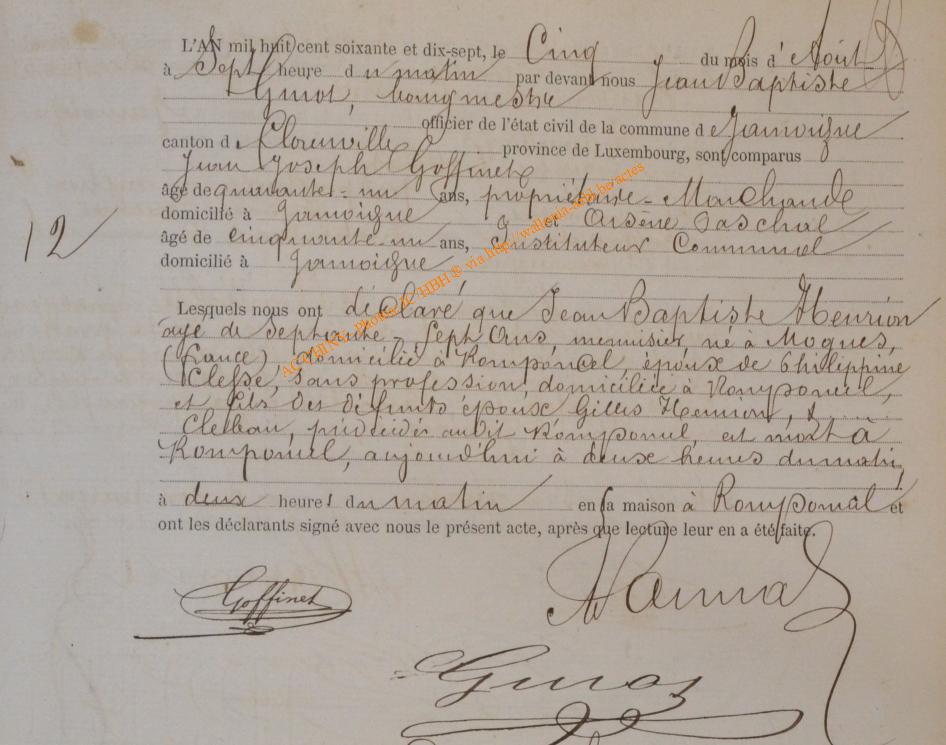 L'AN mil huit cent soixante et dix-sept, le Cinq du mois d'Août
à Sept heure du matin par devant nous Jean Baptiste
bourgmestre
officier de l'état civil de la commune de Jamoigne
canton de Florenville province de Luxembourg, sont comparus
Jean Joseph Goffinet
âgé de quarante-un ans, propriétaire-Marchand
domicilié à Jamoigne et Arsène Paschal
12
âgé de cinquante-un ans, Instituteur Communal
domicilié à Jamoigne
ACCHINY. Photos JC HBH © via http://wallonia-asbl.be/actes
Lesquels nous ont déclaré que Jean Baptiste Henrion
age de Septante-Sept Ans, menuisier, né à Mogues,
(france), domicilié à Romponcel, époux de Philippine
Clesse, sans profession, domiciliée à Romponcel,
et fils des défunts époux Gilles Henrion, &
prédécédés audit Romponcel, est mort à
Romponcel, aujourd'hui à deux heures du matin,
à deux heures du matin en sa maison à Romponcel et
ont les déclarants signé avec nous le présent acte, après que lecture leur en a été faite.
Goffinet